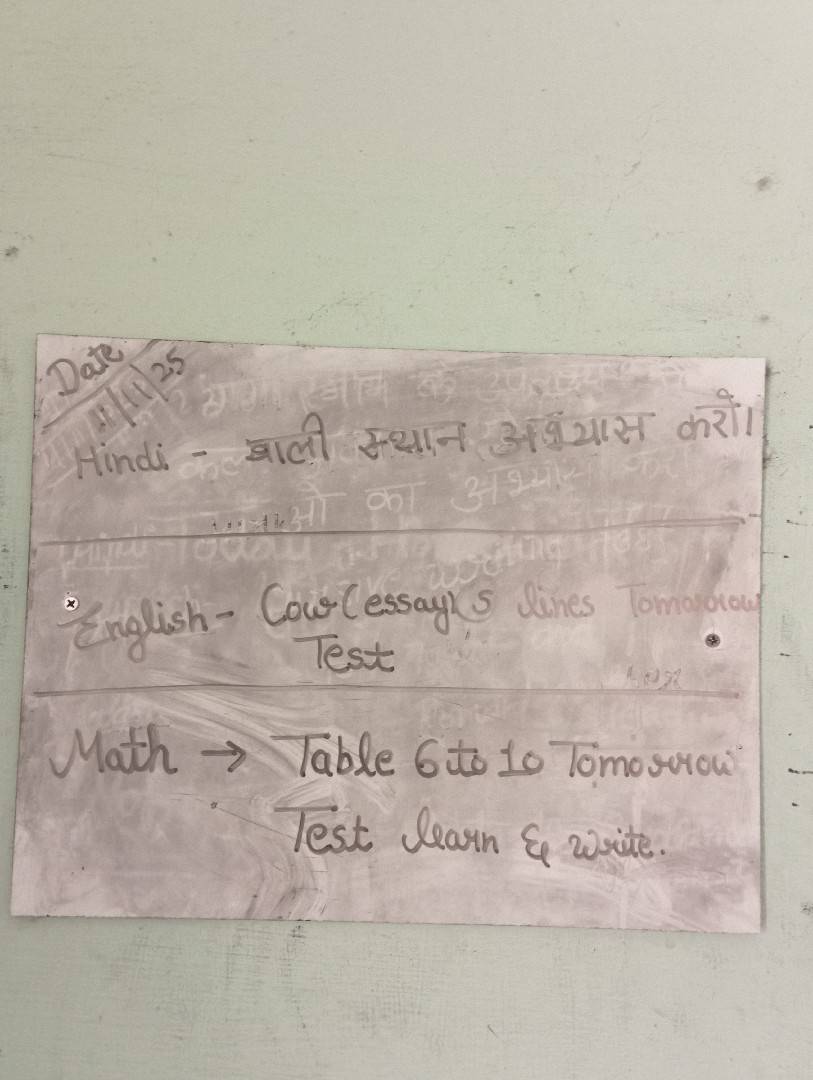 Date
11/11/25
Hindi - खाली स्थान अभ्यास करो।
ओ का अभ्यास
English - Cow (essay) 5 lines Tomorrow
Test
Math → Table 6 to 10 Tomorrow
Test learn & write.